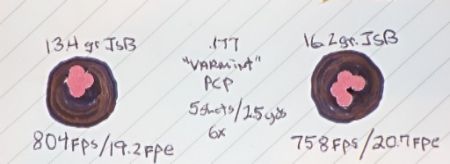 13.4 gr JSB
804 FPS/19.2 FPE
.177
"VARMINT"
PCP
5 shots/25 yds
6x
16.2 gr. JSB
758 FPS/20.7 FPE